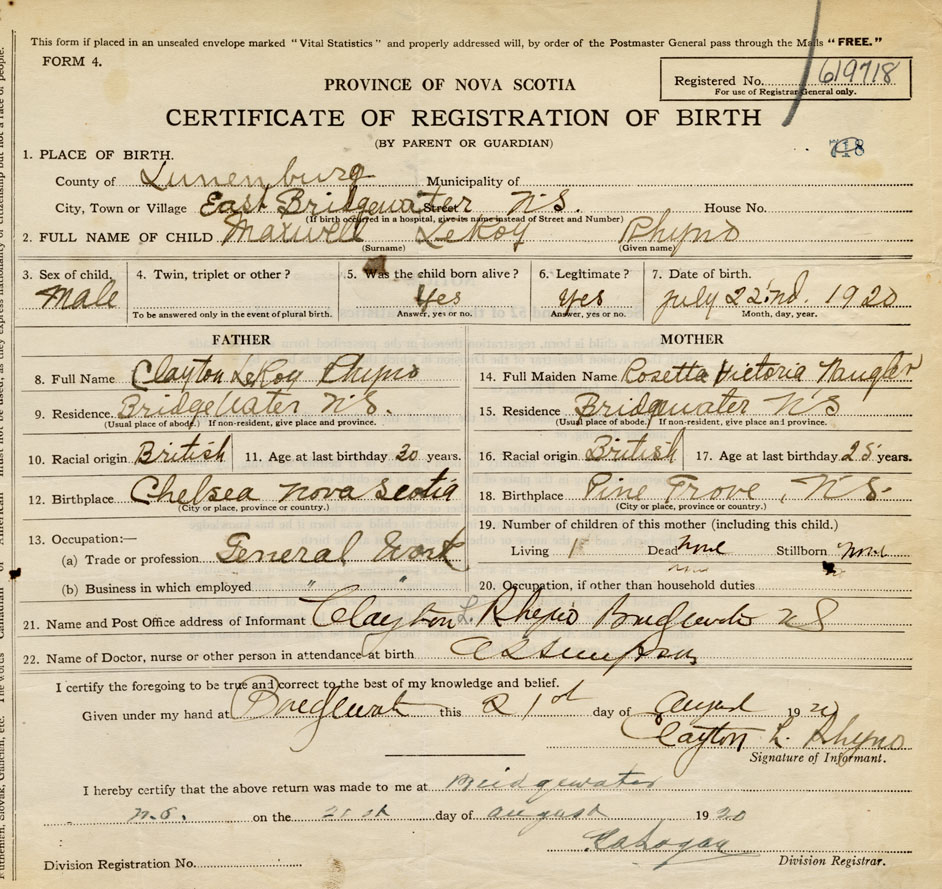 This form if placed in an unsealed envelope marked "Vital Statistics" and properly addressed will, by order of the Postmaster General pass through the Mails "FREE."
FORM 4.
Registered No. 619718
For use of Registrar General only.
PROVINCE OF NOVA SCOTIA
CERTIFICATE OF REGISTRATION OF BIRTH
(BY PARENT OR GUARDIAN)
718
1. PLACE OF BIRTH.
County of Lunenburg Municipality of
City, Town or Village East Bridgewater Street N.S. House No.
(If birth occurred in a hospital, give its name instead of Street and Number)
2. FULL NAME OF CHILD Maxwell LeRoy Rhyno
(Surname) (Given name)
3. Sex of child. 4. Twin, triplet or other? 5. Was the child born alive? 6. Legitimate? 7. Date of birth.
Male Yes Yes July 22nd. 1920
To be answered only in the event of plural birth. Answer, yes or no. Answer, yes or no. Month, day, year.
FATHER
8. Full Name Clayton LeRoy Rhyno
9. Residence Bridgewater N.S.
(Usual place of abode.) If non-resident, give place and province.
10. Racial origin British 11. Age at last birthday 30 years.
12. Birthplace Chelsea Nova Scotia
(City or place, province or country.)
13. Occupation:—
(a) Trade or profession General Work
(b) Business in which employed " "
MOTHER
14. Full Maiden Name Rosetta Victoria Naugler
15. Residence Bridgewater N S
(Usual place of abode.) If non-resident, give place and province.
16. Racial origin British 17. Age at last birthday 25 years.
18. Birthplace Pine Grove, N.S.
(City or place, province or country.)
19. Number of children of this mother (including this child.)
Living 1 Dead None Stillborn None
20. Occupation, if other than household duties
21. Name and Post Office address of Informant Clayton L. Rhyno Bridgewater NS
22. Name of Doctor, nurse or other person in attendance at birth
I certify the foregoing to be true and correct to the best of my knowledge and belief.
Given under my hand at Bridgewater this 21st day of August 1920
Clayton L. Rhyno
Signature of Informant.
I hereby certify that the above return was made to me at Bridgewater
N.S. on the 21st day of August 1920
Division Registration No. Division Registrar.